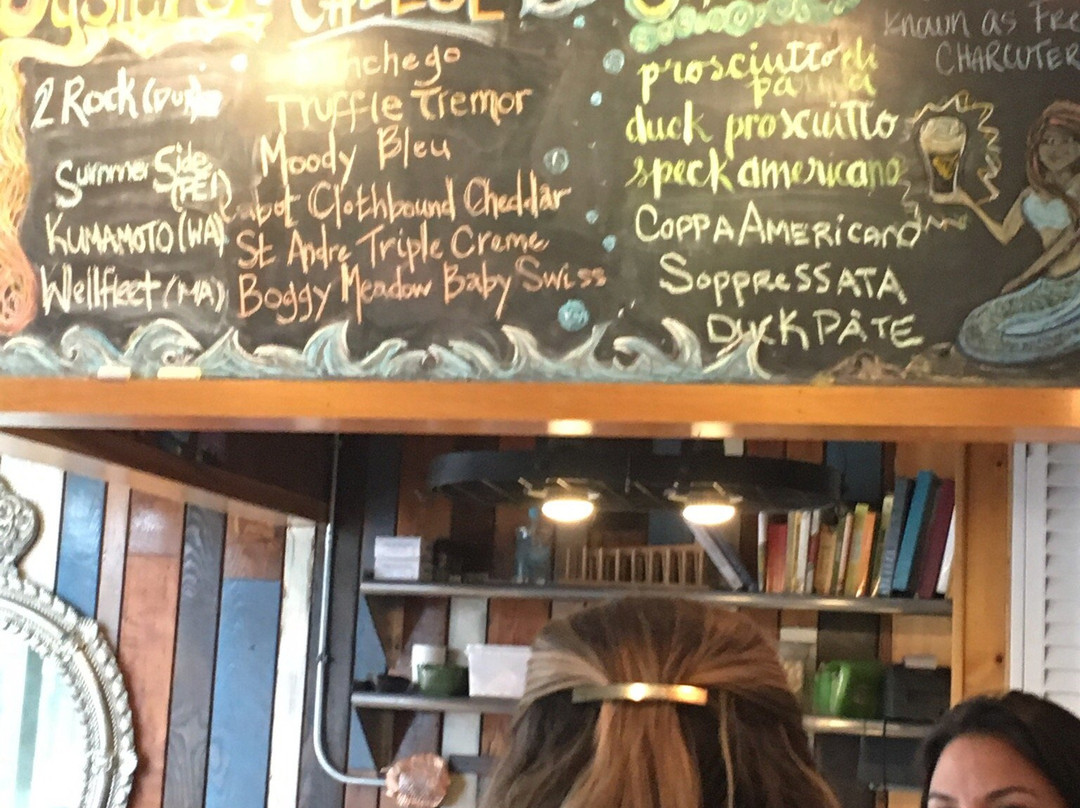 Oysters
2 Rock (
Summer Side
(PEI)
KUMAMOTO (WA)
Wellfleet (MA)
CHEESE
Manchego
Truffle Tremor
Moody Bleu
Cabot Clothbound Cheddar
St Andre Triple Creme
Boggy Meadow Baby Swiss
prosciutto di
parma
duck prosciutto
speck americano
COPPA AMERICANO
SOPPRESSATA
DUCK PÂTE
known as
CHARCUTER